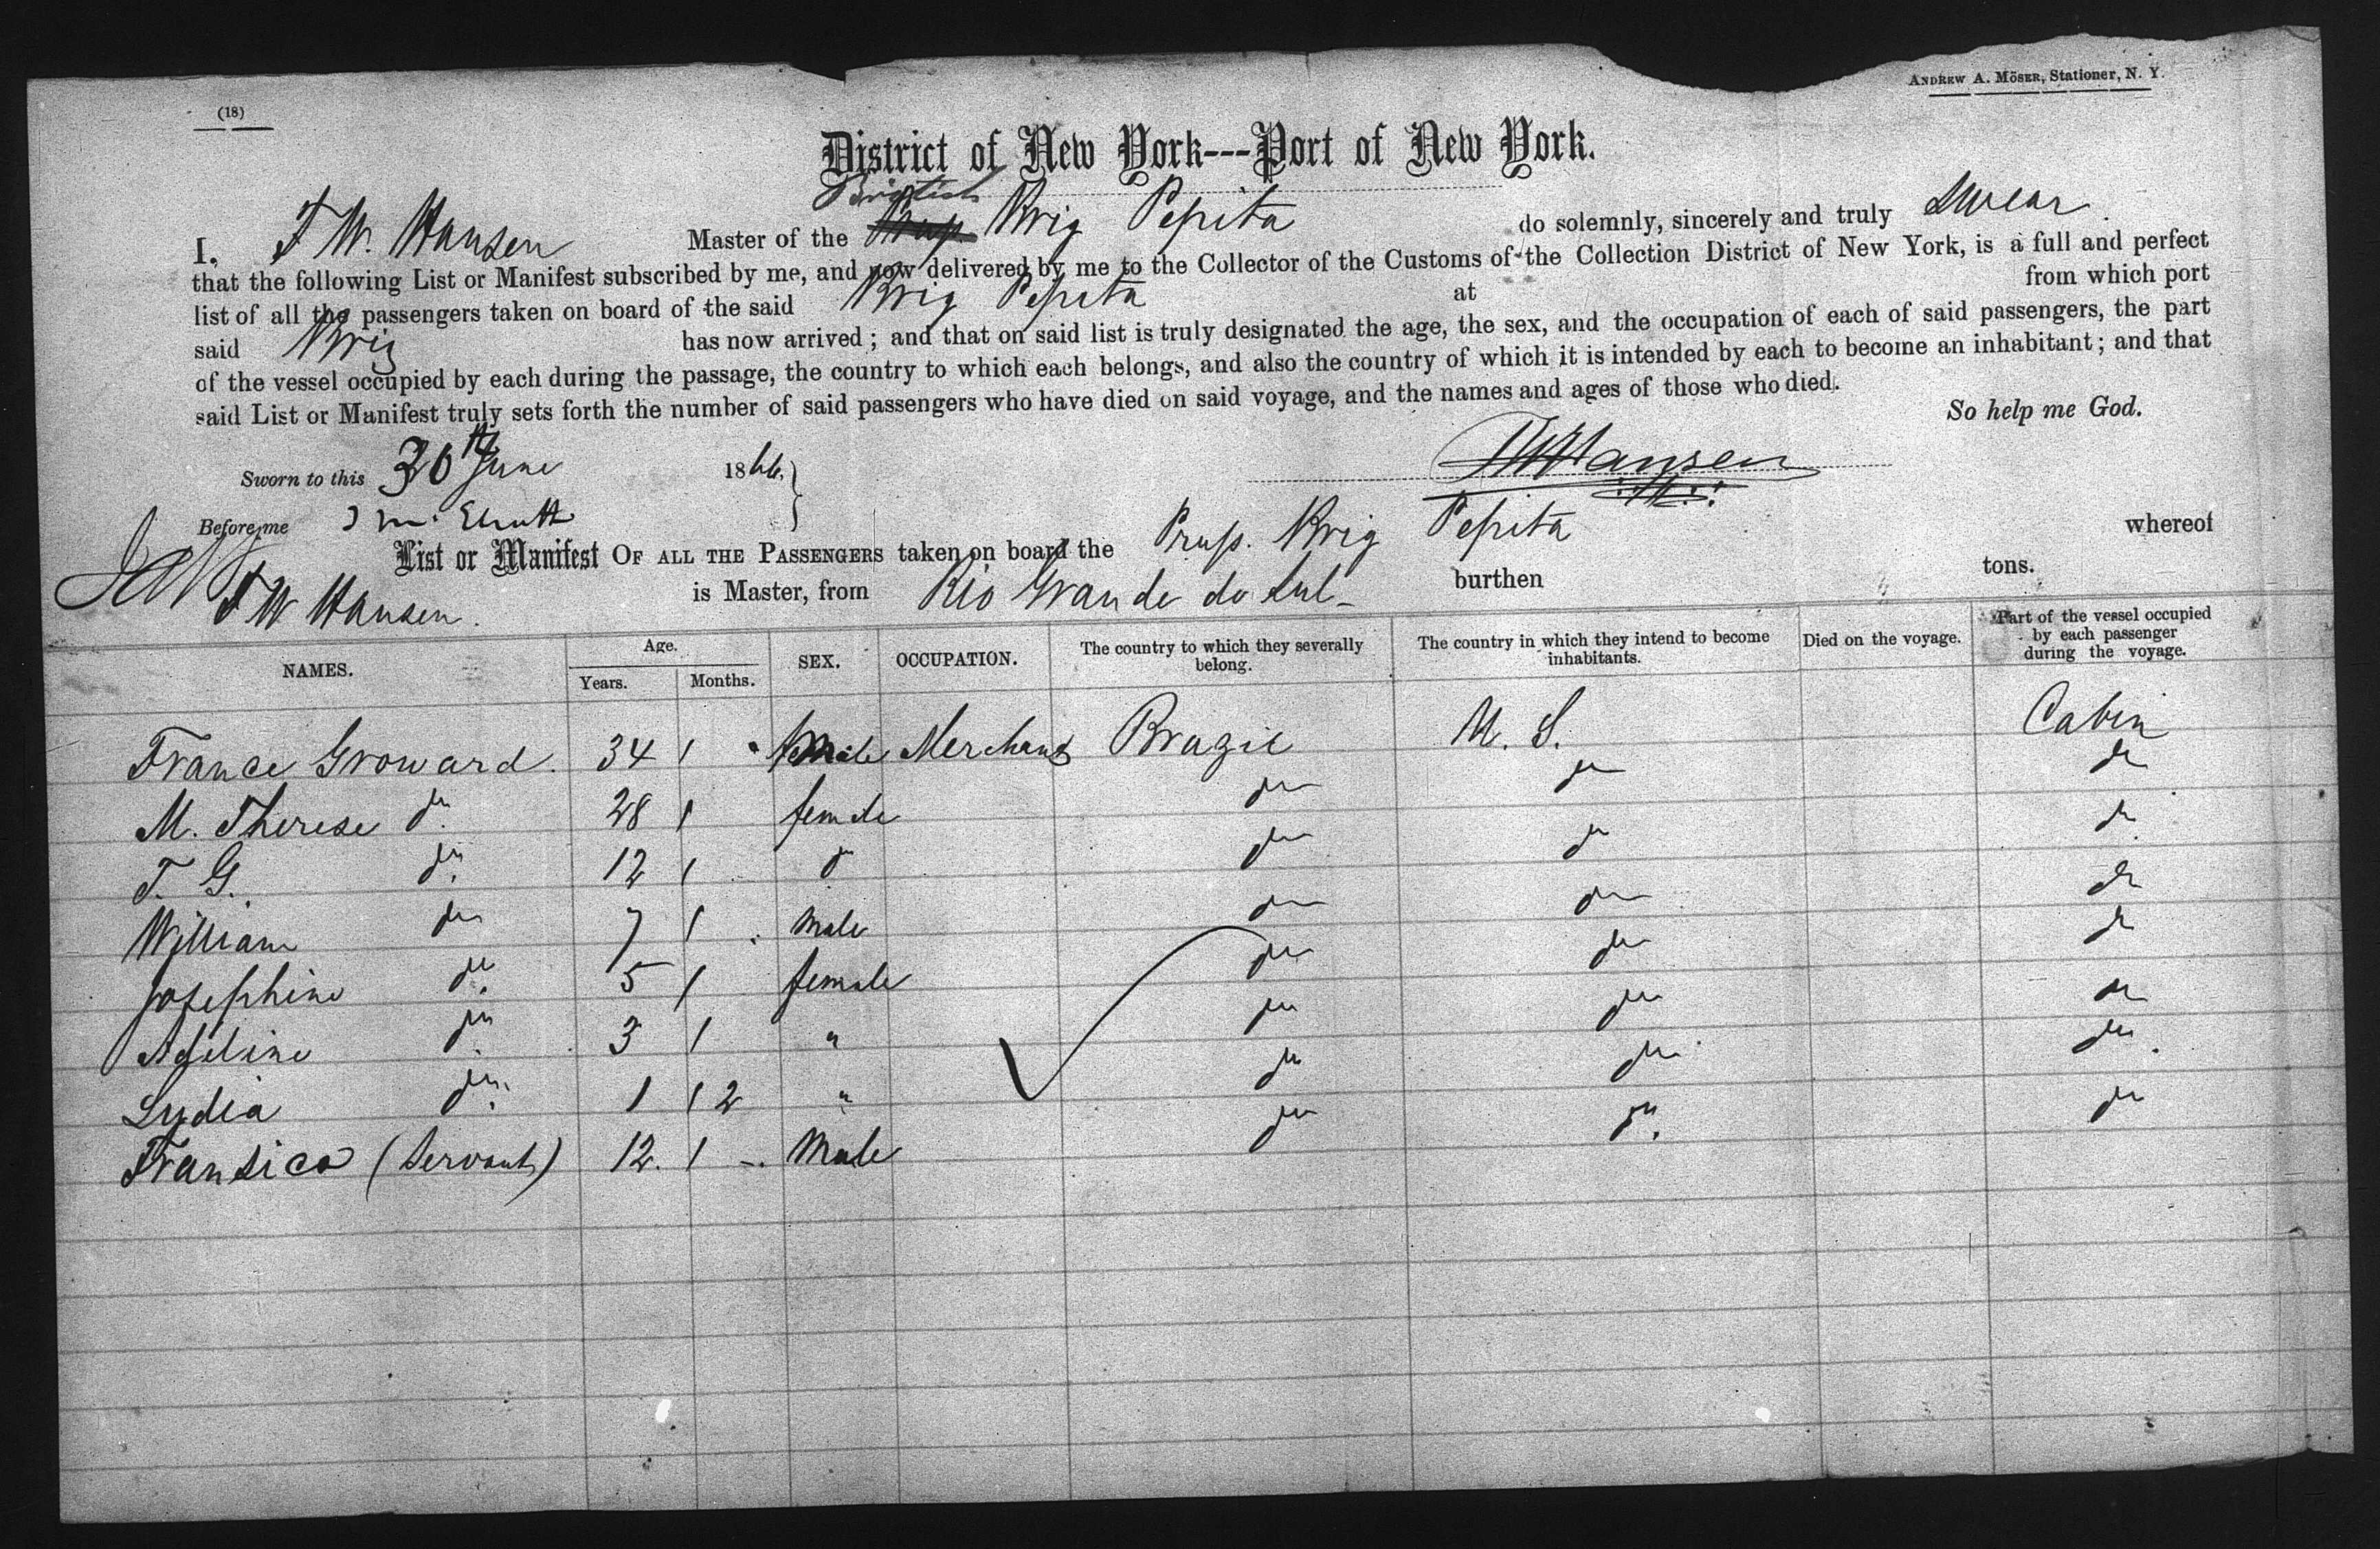 (18)
ANDREW A. MÖSER, Stationer, N. Y.
District of New York---Port of New York.
British
I, F W. Hansen Master of the Brig Pepita do solemnly, sincerely and truly swear
that the following List or Manifest subscribed by me, and now delivered by me to the Collector of the Customs of the Collection District of New York, is a full and perfect
list of all the passengers taken on board of the said Brig Pepita at from which port
said Brig has now arrived; and that on said list is truly designated the age, the sex, and the occupation of each of said passengers, the part
of the vessel occupied by each during the passage, the country to which each belongs, and also the country of which it is intended by each to become an inhabitant; and that
said List or Manifest truly sets forth the number of said passengers who have died on said voyage, and the names and ages of those who died.
So help me God.
Sworn to this 30th June 1866. FWHansen
Before me
List or Manifest OF ALL THE PASSENGERS taken on board the Pruss. Brig Pepita whereof
F W Hansen. is Master, from Rio Grande do Sul burthen tons.
NAMES. Age. Years. Months. SEX. OCCUPATION. The country to which they severally belong. The country in which they intend to become inhabitants. Died on the voyage. Part of the vessel occupied by each passenger during the voyage.
France Groward. 34 / male Merchant Brazil U. S. Cabin
M. Therese do 28 / female do do do
F. G. do 12 / do do do do
William do 7 / male do do do
Josephine do 5 / female do do do
Adeline do 3 / " do do do
Lydia do 1 / 2 " do do do
Fransico (Servant) 12. / Male do do do